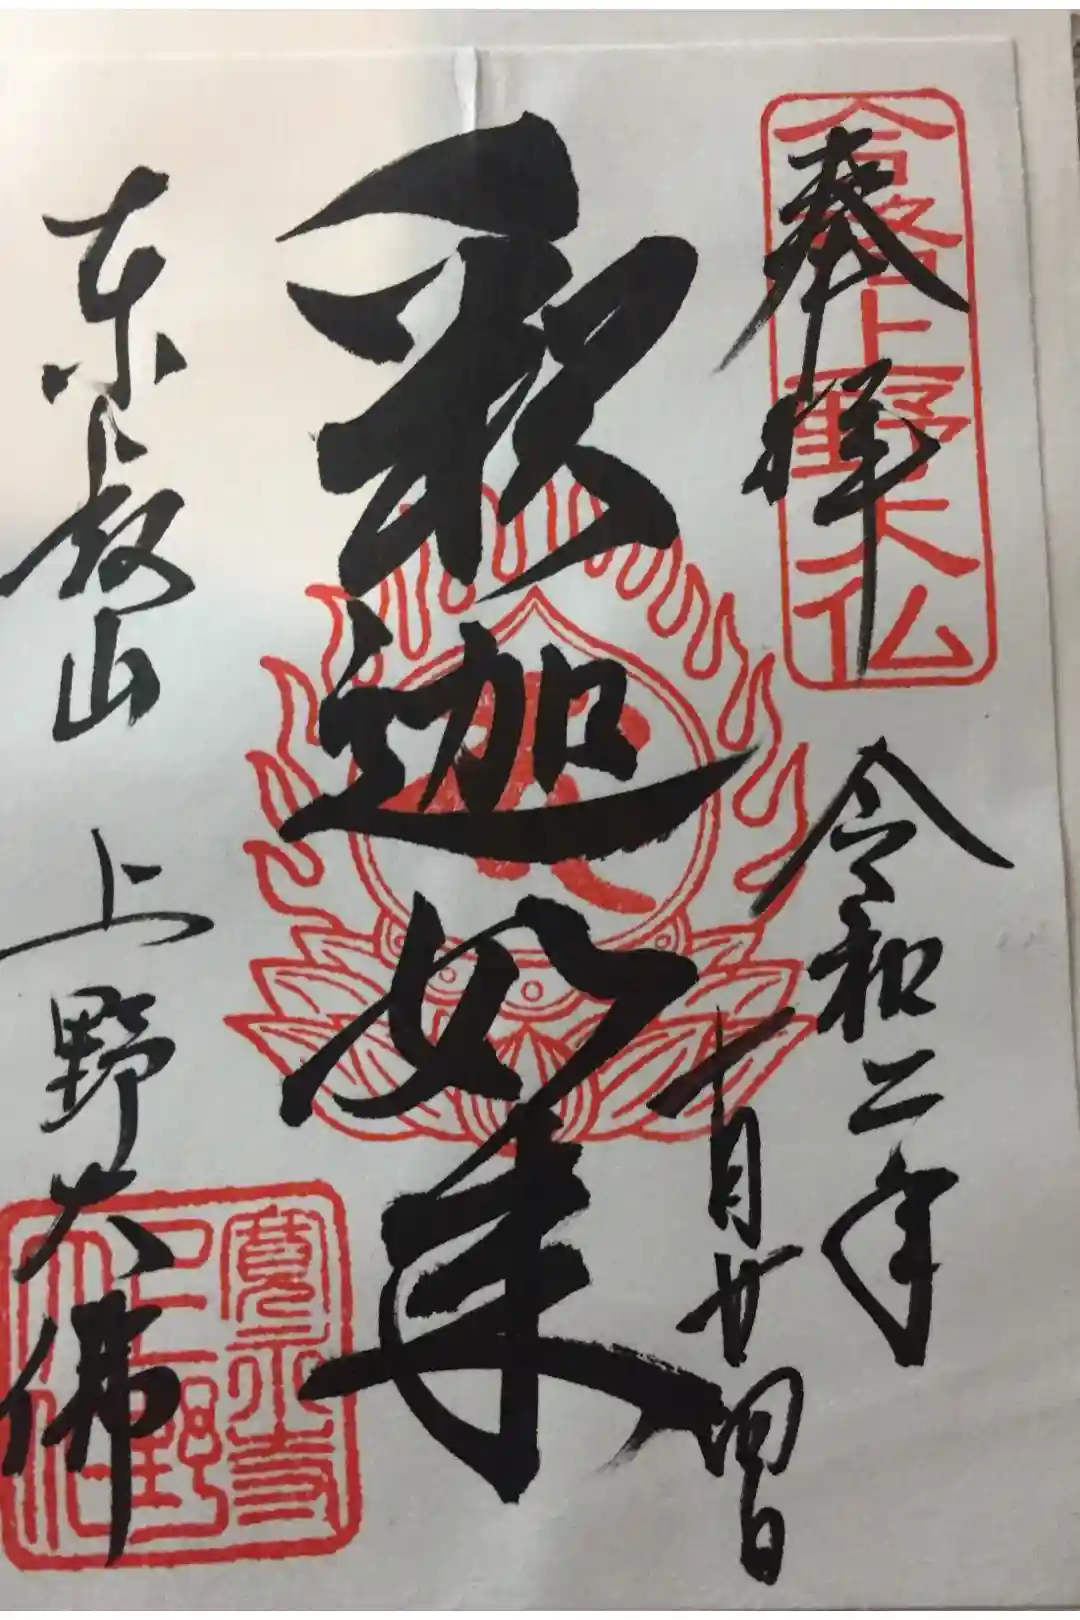 奉拝
合格上野大仏
令和二年
十月廿四日
釈迦如来
東叡山
上野大佛
寛永寺
上野
大仏